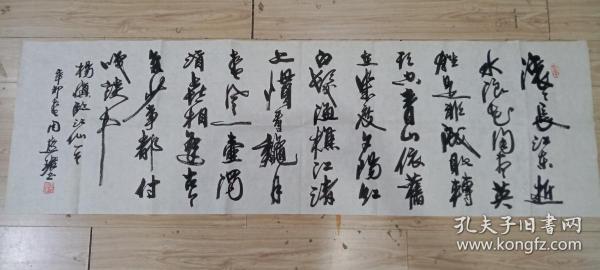 滚〻长江东逝
水浪花淘尽英
雄是非成败转
头空青山依旧
在几度夕阳红
白发渔樵江渚
上惯看秋月
春风一壶浊
酒喜相逢古今
多少事都付
笑谈中
杨慎临江仙一首
辛卯春
孔夫子旧书网
www.kongfz.com